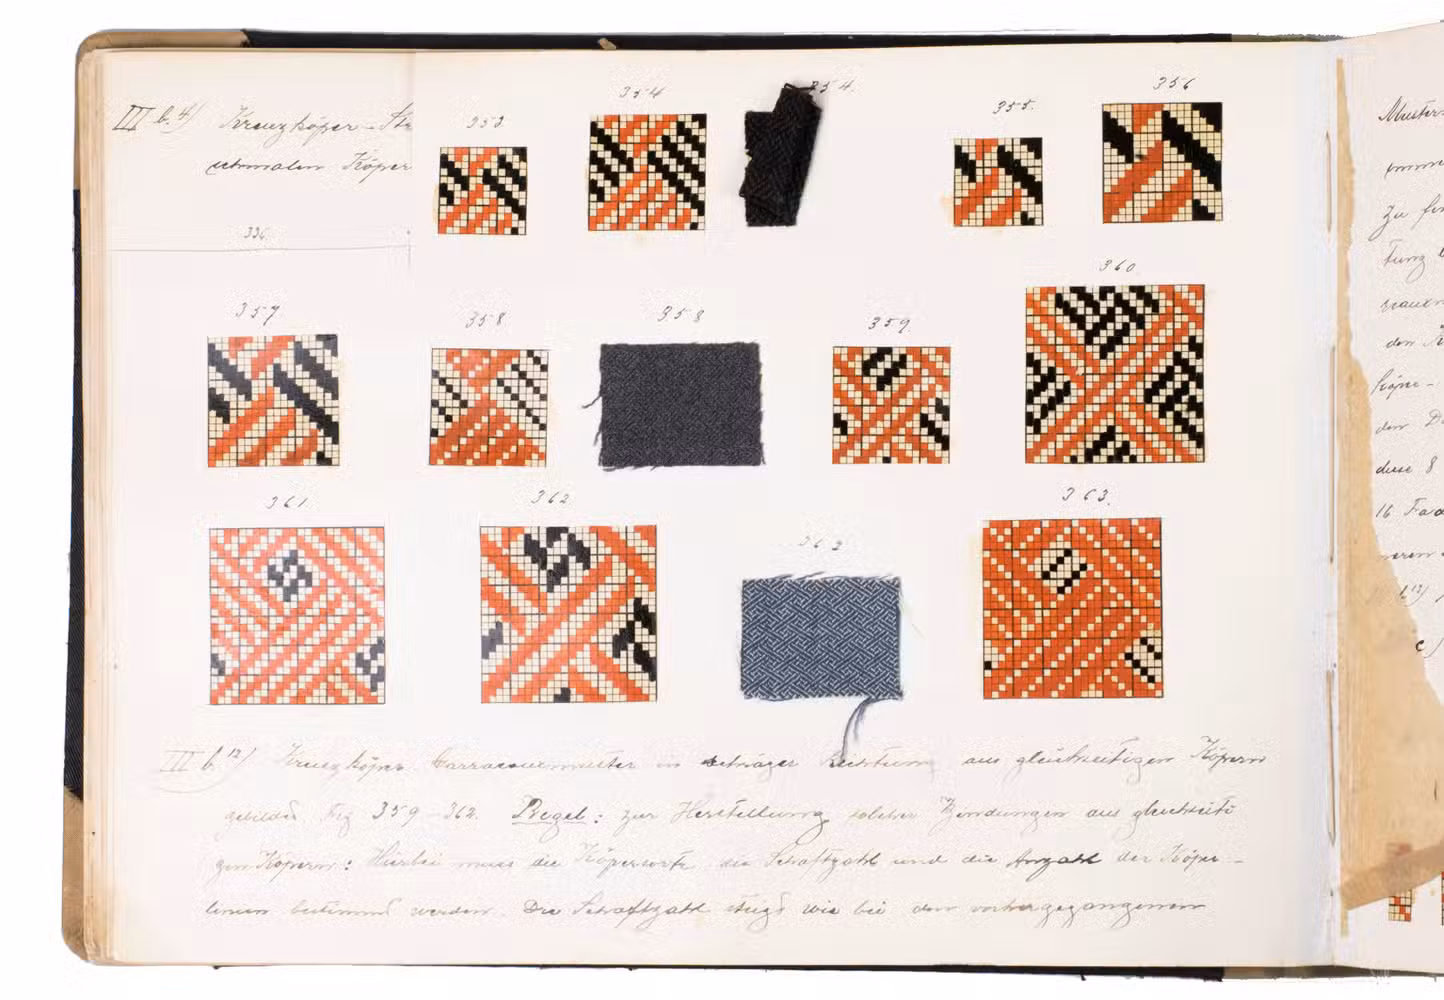 III b. 4) Kreuzköper-
schmalen Köper
336
353
354
354.
355.
356
357
358
358
359.
360
361
362
362
363.
III b. 12) Kreuzköper Carreauxmuster in schräger Richtung aus gleichseitigen Köpern
gebildet Fig 359-362. Regel: zur Herstellung solcher Bindungen aus gleichseiti
gen Köpern: Hierbei muss die Köpersorte die Schaftzahl und die Anzahl der Köper-
linien bestimmt werden. Die Schaftzahl steigt wie bei den vorhergegangenen
Muster
den
Köper-
den
diese 8
16
c)